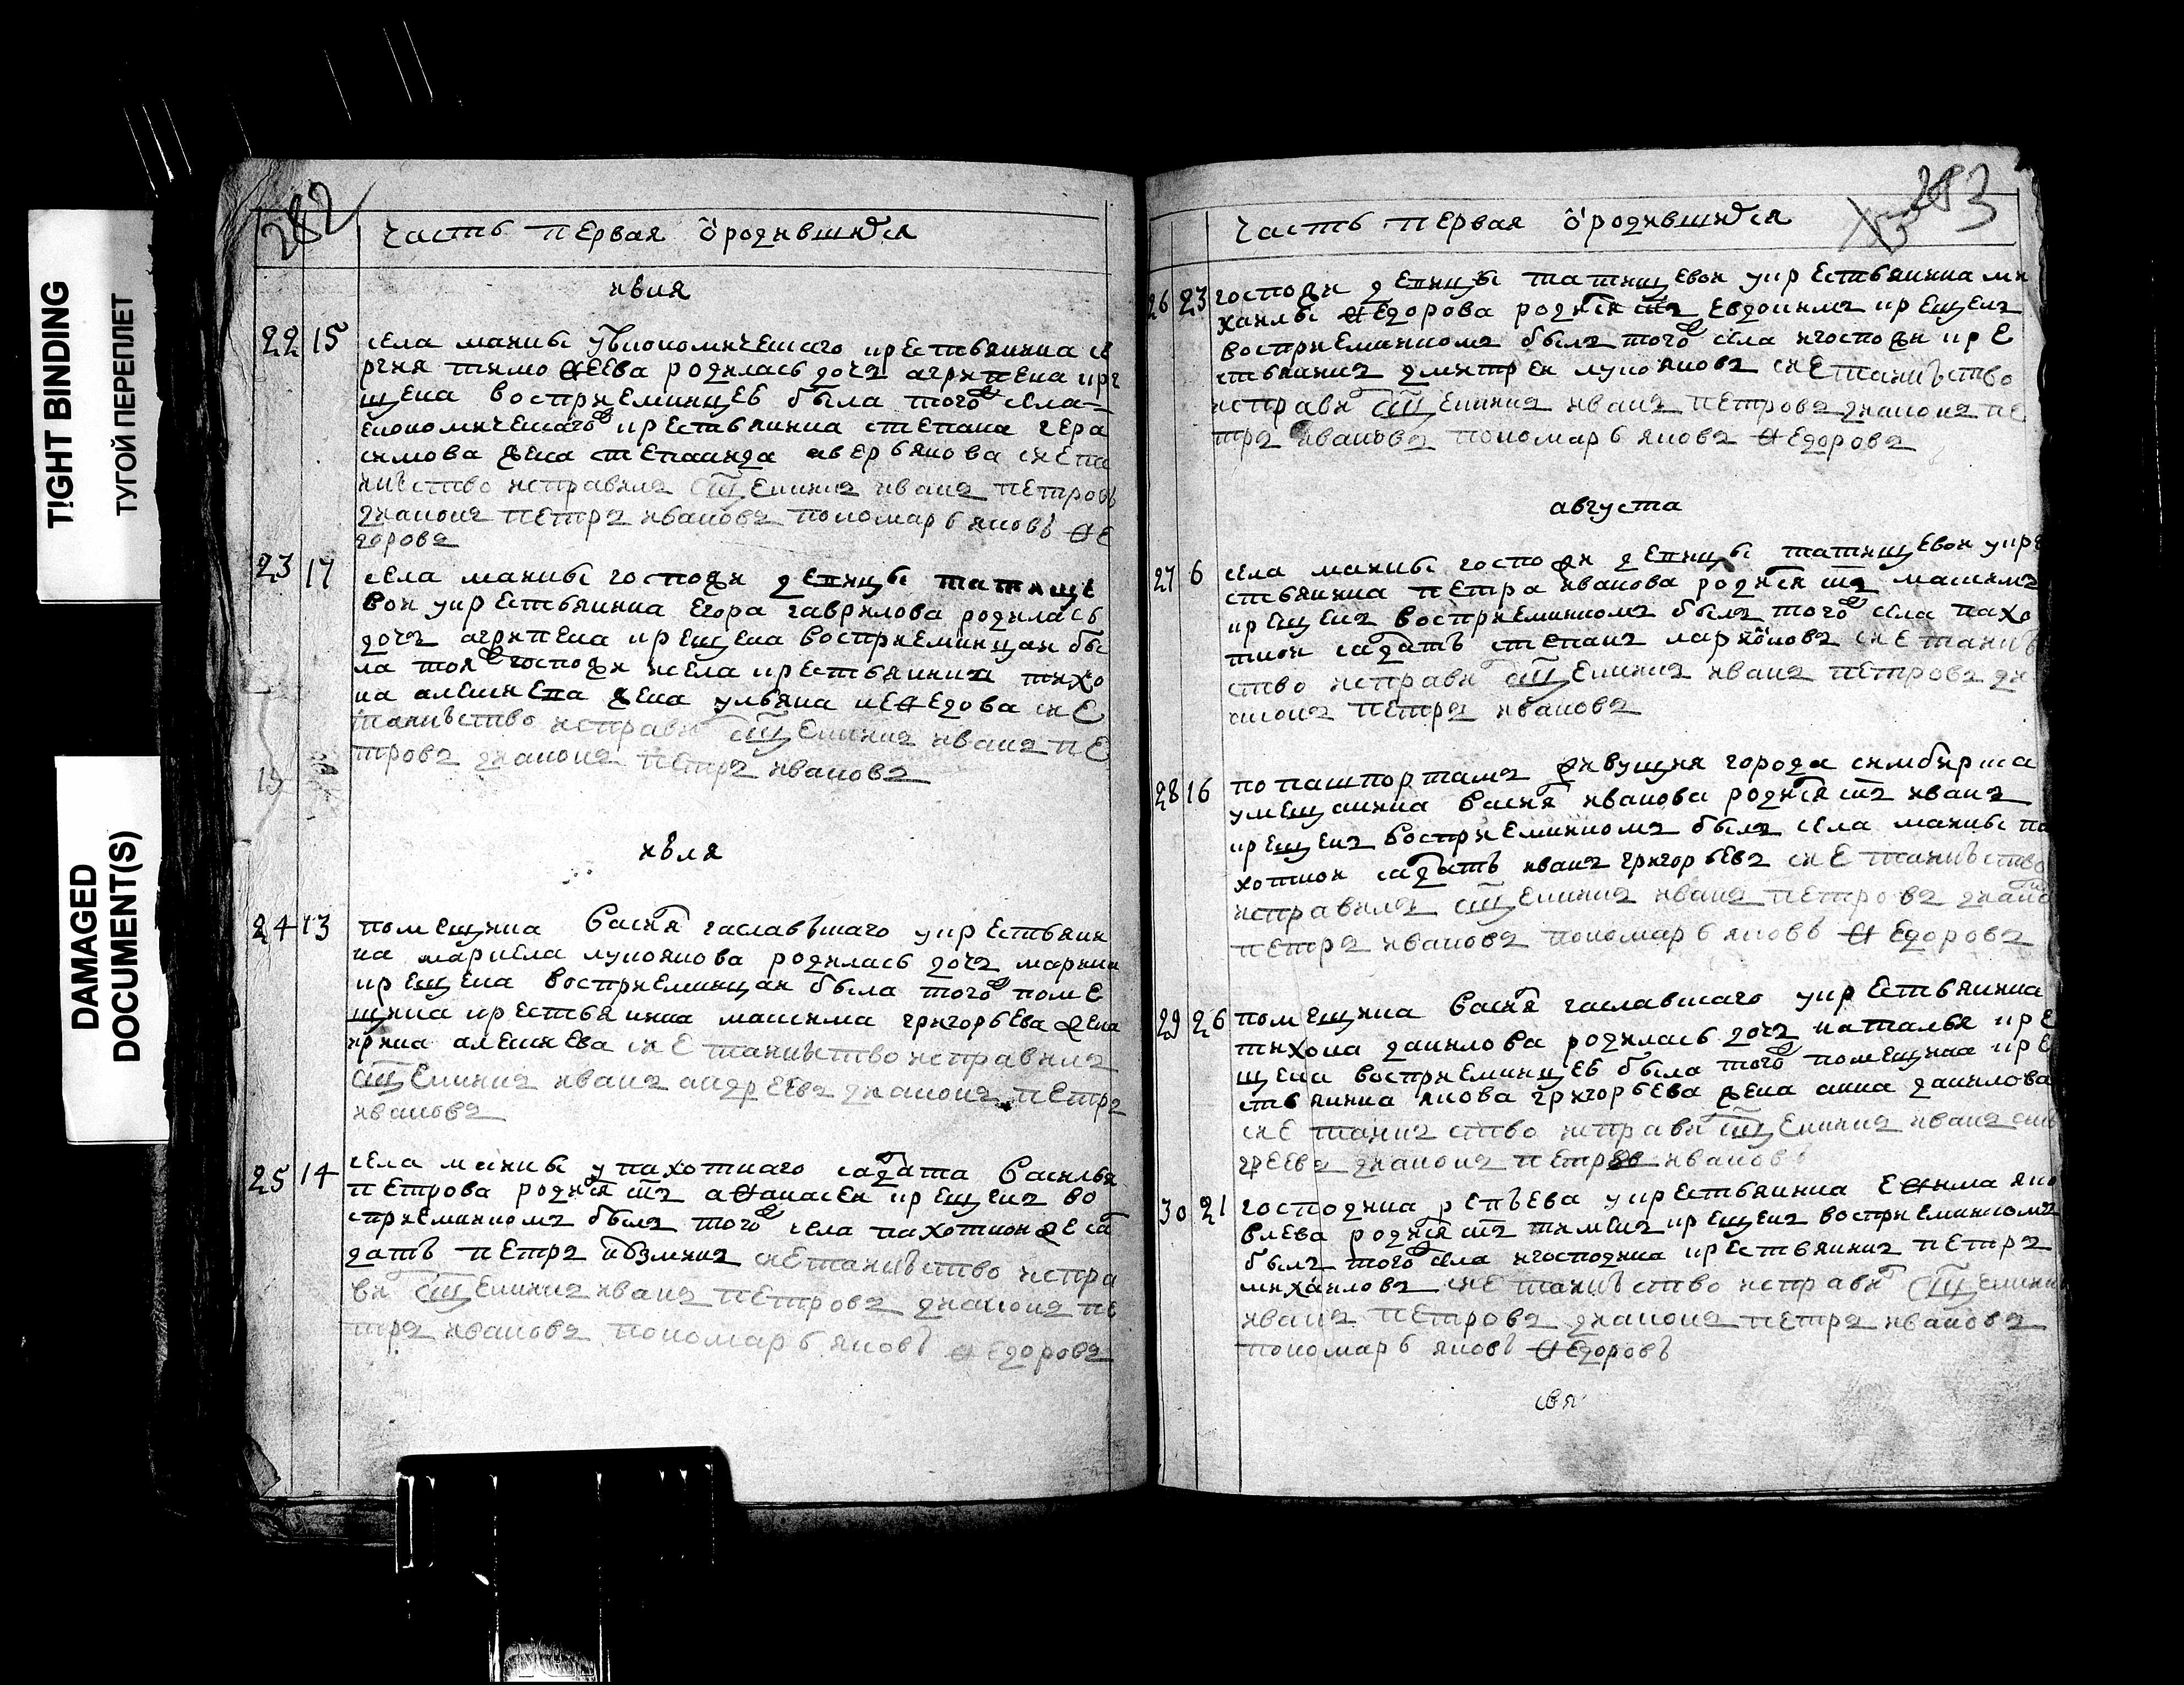 TIGHT BINDING
ТУГОЙ ПЕРЕПЛЕТ
DAMAGED
DOCUMENT(S)
282
часть первая о родившихся
июня
22 15 села маины у экономического крестьянина се
ргея тимофеева родилась дочь агрипена кре
щена восприемницеб была того же села
економического крестьянина степана гера
симова жена степанида аверьянова сие та
инъство исправилъ сщенникъ иванъ петровъ
дияконъ петръ ивановъ пономарь яковъ фе
доровъ
23 17 села маины госпожи девицы татище
вои у крестьянина егора гаврилова родилась
дочь агрипена крещена восприемницаи бы
ла тоя же госпожи и села крестьянина тихо
на алексеева жена ульяна нефедова сие
таинъство исправи сщенникъ иванъ пе
тровъ дияконъ петръ ивановъ
июля
24 13 помещика васия гаславъшаго у крестьяни
на маркела лукоянова родилась дочь марина
крещена восприемницаи была того же поме
щика крестьянина максима григорьева жена
ирина алексеева сие таинъство исправилъ
сщенникъ иванъ андреевъ дияконъ петръ
ивановъ
25 14 села маины у пахотнаго садата василья
петрова родися снъ афанасеи крещенъ во
сприемникомъ былъ того же села пахотнои же са
датъ петръ сие таинъство испра
ви сщенникъ иванъ петровъ дияконъ пе
тръ ивановъ пономарь яковъ федоровъ
283
часть первая о родившихся
26 23 госпожи девицы татищевои у крестьянина ми
хаилы федорова родися снъ евдокимъ крещенъ
восприемникомъ былъ того же села и госпожи кре
стьянинъ дмитреи лукояновъ сие таинъство
исправи сщенникъ иванъ петровъ дияконъ пе
тръ ивановъ пономарь яковъ федоровъ
августа
27 6 села маины госпожи девицы татищевои у кре
стьянина петра иванова родися снъ максимъ
крещенъ восприемникомъ былъ того же села пахо
тнои садатъ степанъ ларионовъ сие таинъ
ство исправи сщенникъ иванъ петровъ ди
яконъ петръ ивановъ
28 16 по пашпортамъ живущия города симбирска
у мещанина васия иванова родися снъ иванъ
крещенъ восприемникомъ былъ села маины па
хотнои садатъ иванъ григорьевъ сие таинъство
исправилъ сщенникъ иванъ петровъ дияко
петръ ивановъ пономарь яковъ федоровъ
29 26 помещика васия гаславшаго у крестьянина
тихона данилова родилась дочь наталья кре
щена восприемницеб была того же помещика кре
стьянина якова григорьева жена анна данилова
сие таинъ ство исправи сщенникъ иванъ ан
дреевъ дияконъ петръ ивановъ
30 21 господина репьева у крестьянина ефима яко
влева родися снъ крещенъ восприемникомъ
былъ того же села и господина крестьянинъ петръ
михаиловъ сие таинъство исправи сщенник
иванъ петровъ дияконъ петръ ивановъ
пономарь яковъ федоровъ